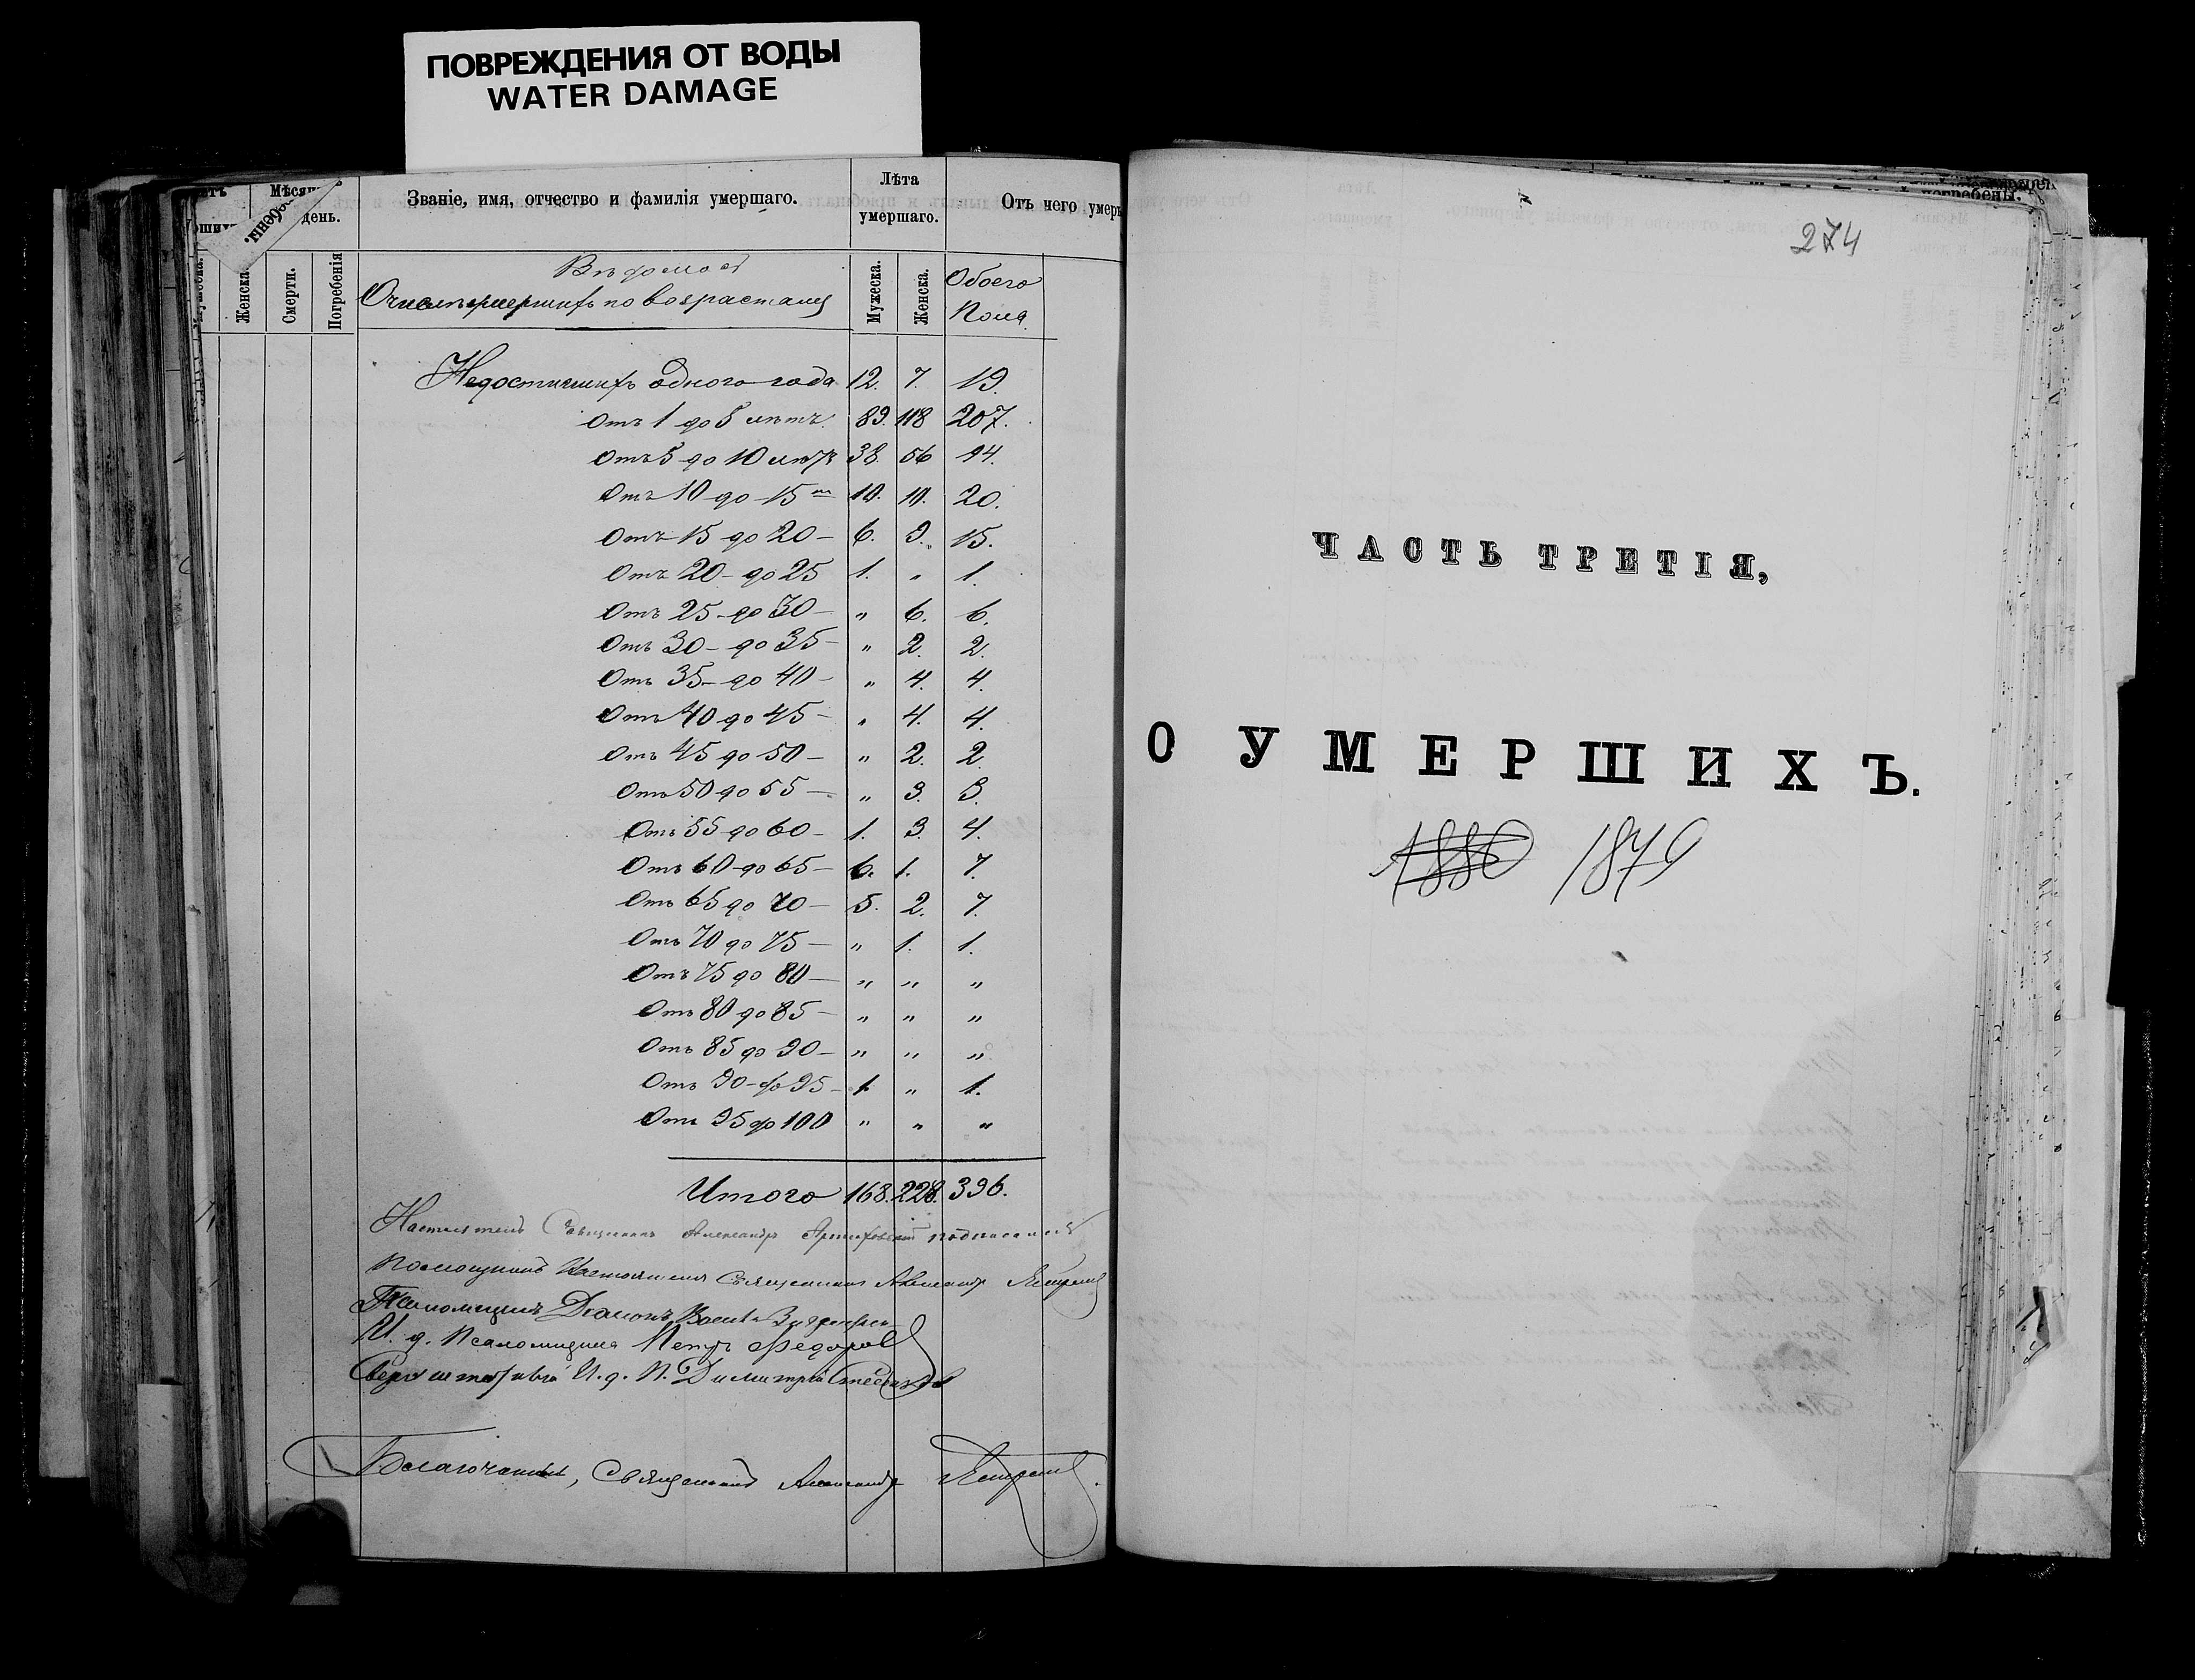 ПОВРЕЖДЕНИЯ ОТ ВОДЫ
WATER DAMAGE
Мѣсяцъ
день.
Званіе, имя, отчество и фамилія умершаго.
Лѣта
умершаго.
Отъ чего умеръ
Женска.
Смерти.
Погребенія
Мужеска.
Женска.
Обоего
Пола.
Вѣдомость
О числѣ умершихъ по возрастамъ
Недостигшихъ одного года 12. 7. 19.
Отъ 1 до 5 лѣтъ. 89. 118 207.
Отъ 5 до 10 лѣтъ 38. 56 94.
Отъ 10 до 15 10. 10. 20.
Отъ 15 до 20 — 6. 9. 15.
Отъ 20 — до 25 1. „ 1.
Отъ 25 — до 30 — „ 6. 6.
Отъ 30 — до 35 — „ 2. 2.
Отъ 35 — до 40 — „ 4. 4.
Отъ 40 до 45 — „ 4. 4.
Отъ 45 до 50 — „ 2. 2.
Отъ 50 до 55 — „ 3. 3.
Отъ 55 до 60 — 1. 3. 4.
Отъ 60 до 65 — 6. 1. 7.
Отъ 65 до 70 — 5. 2. 7.
Отъ 70 до 75 — „ 1. 1.
Отъ 75 до 80 — „ „ „
Отъ 80 до 85 — „ „ „
Отъ 85 до 90 — „ „ „
Отъ 90 — до 95 — 1. „ 1.
Отъ 95 до 100 „ „ „
Итого 168. 228. 396.
Настоятель Священникъ Александръ подписался
Помощникъ Настоятеля Священникъ Александръ
Псаломщикъ Діаконъ
И. д. Псаломщика Петръ Федоровъ
Сверхштатный И. д. П. Димитрій
Благочинный, Священникъ Александръ
274
ЧАСТЬ ТРЕТІЯ,
О УМЕРШИХЪ.
1880 1879